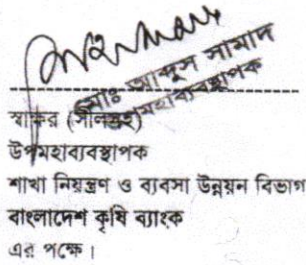 মোঃ আব্দুস সামাদ
উপমহাব্যবস্থাপক
স্বাক্ষর (সীলসহ)
উপমহাব্যবস্থাপক
শাখা নিয়ন্ত্রণ ও ব্যবসা উন্নয়ন বিভাগ
বাংলাদেশ কৃষি ব্যাংক
এর পক্ষে।